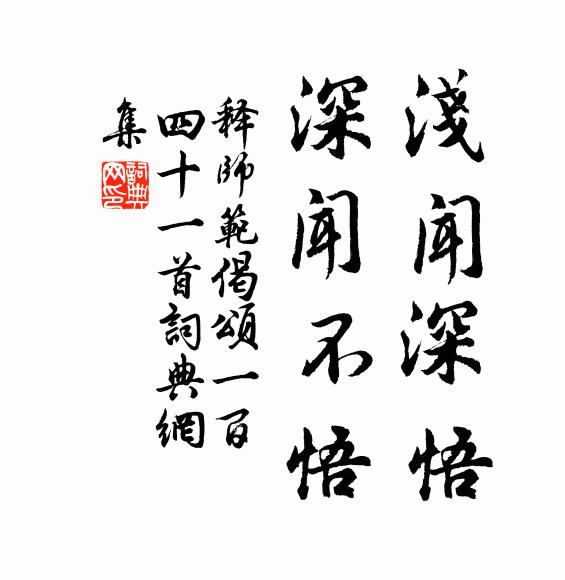 淺聞深悟
深聞不悟
释師範偈頌一百
四十一首詞典網
集
詞典
网印